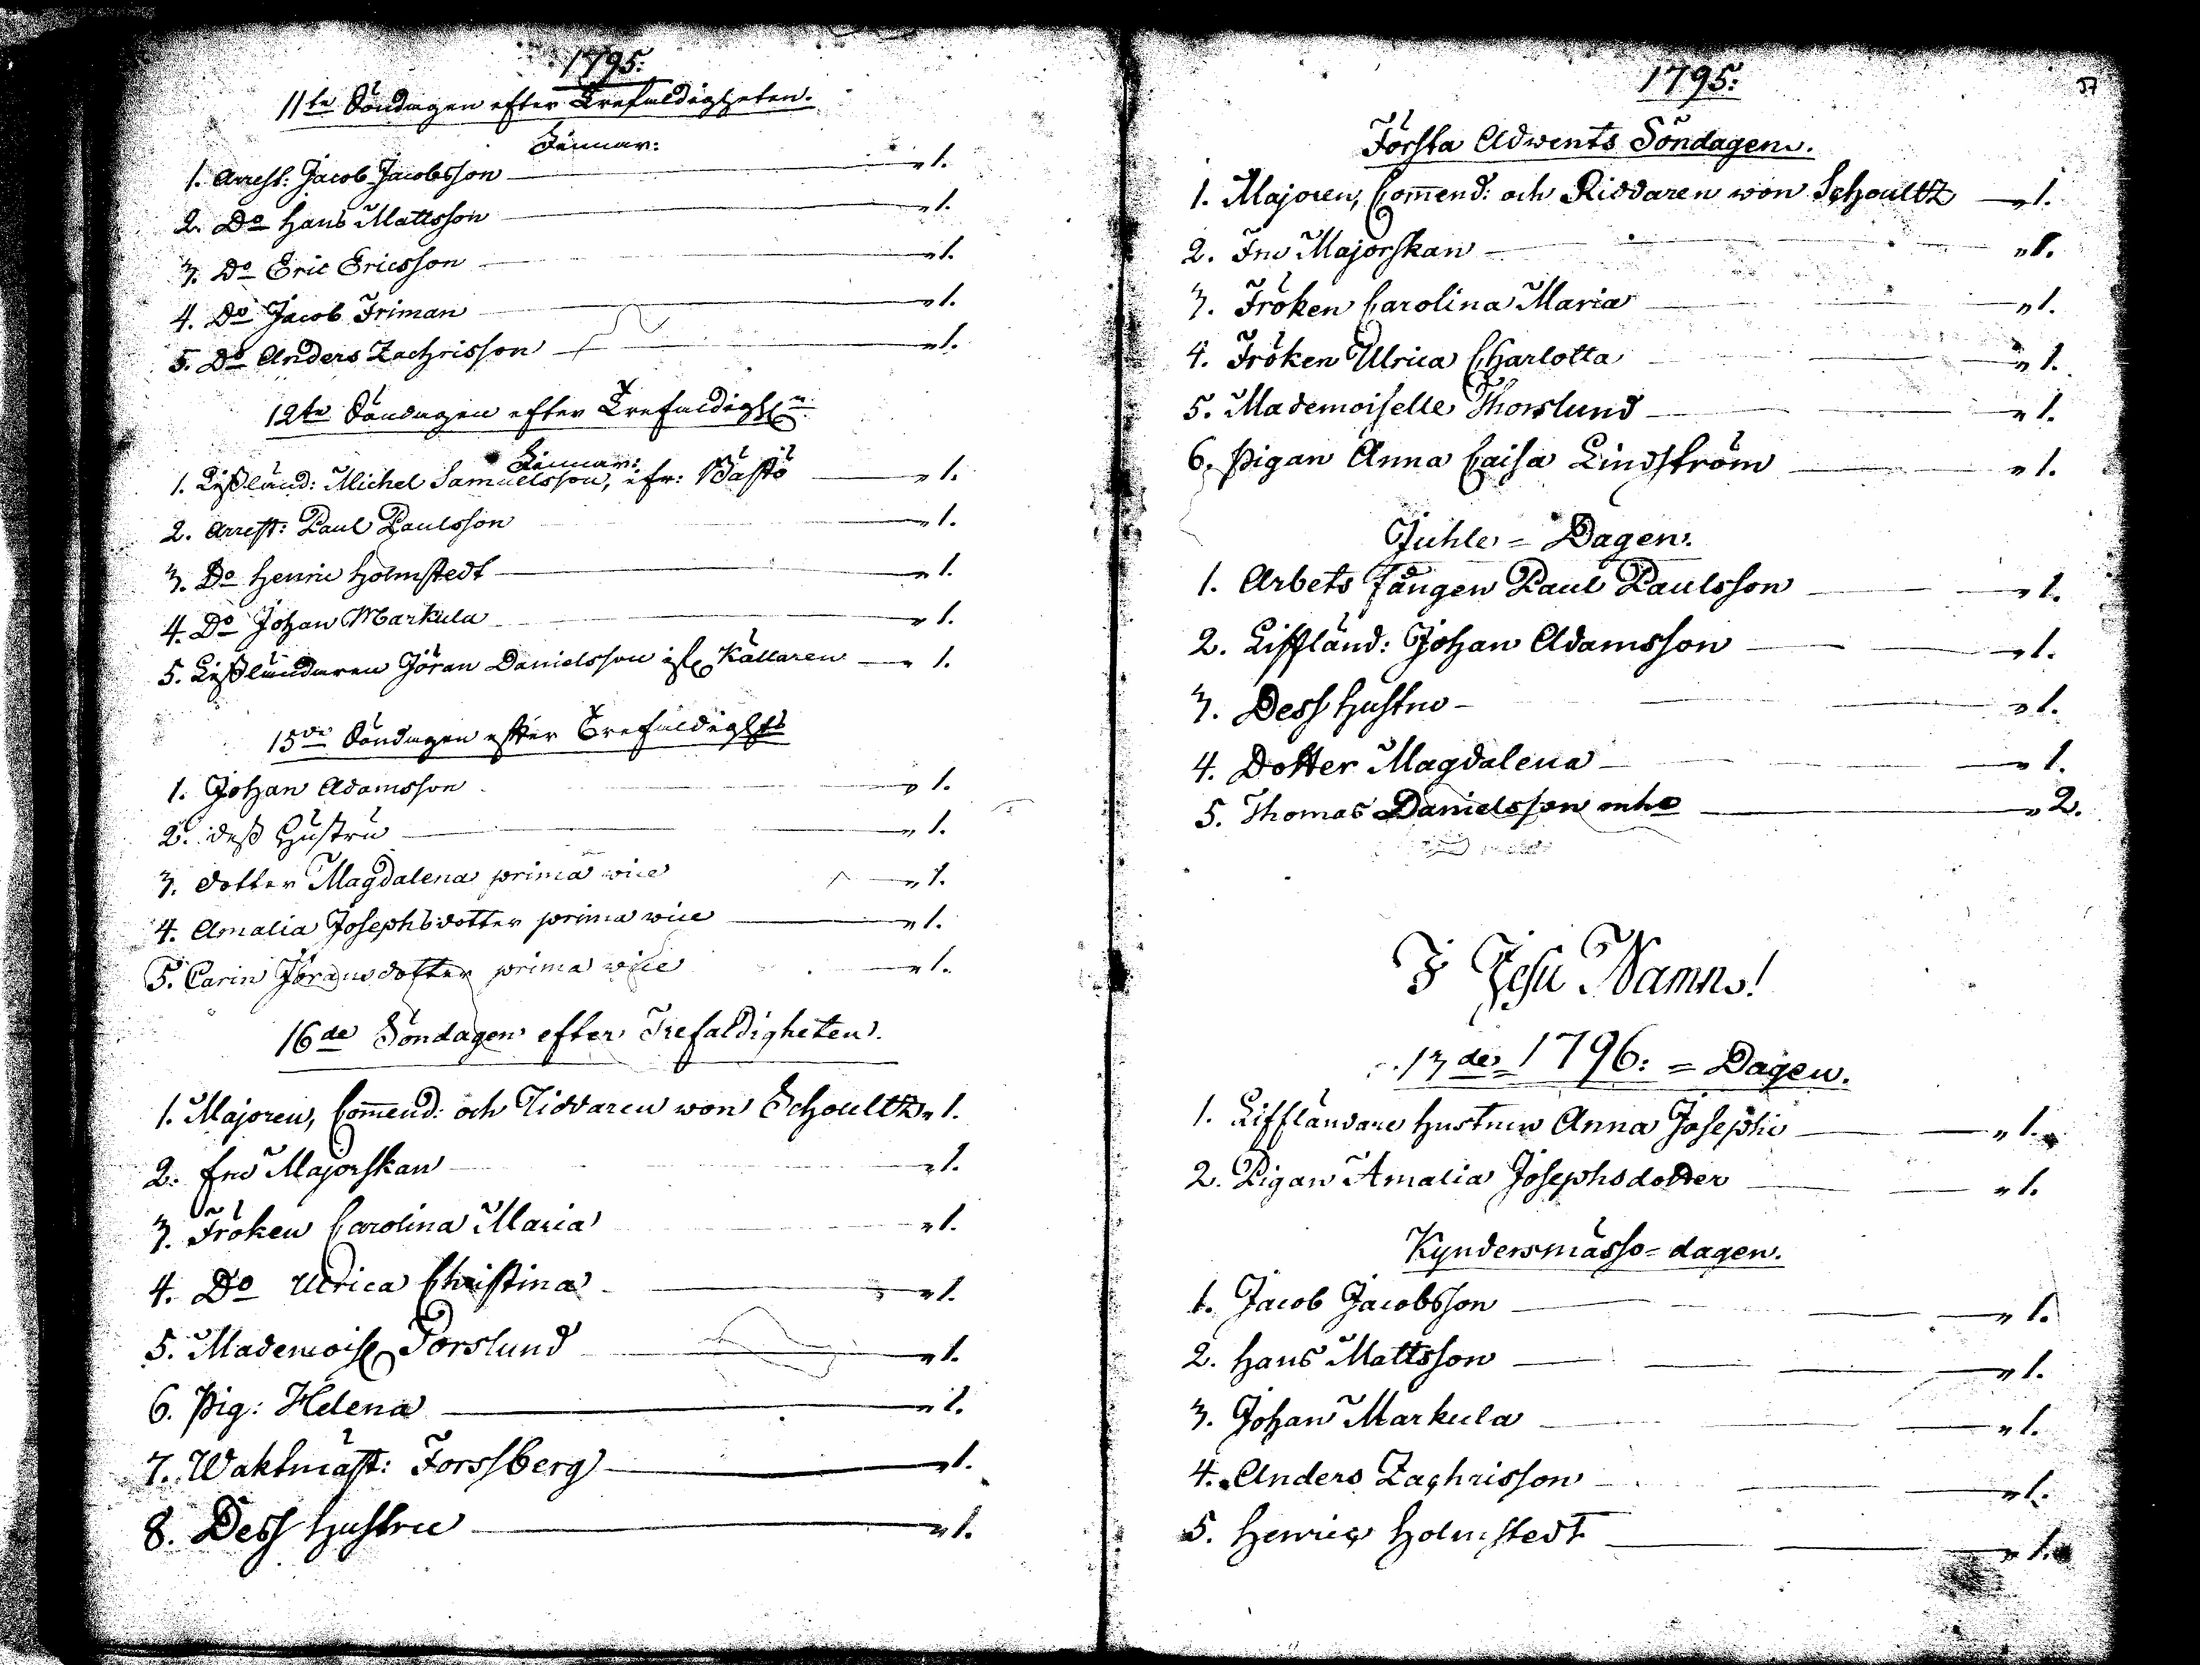 1795:
11te Söndagen efter Trefaldigheten.
Finnar:
1. Arrest: Jacob Jacobsson — " 1.
2. Do Hans Mattsson — " 1.
3. Do Eric Ericsson — " 1.
4. Do Jacob Friman — " 1.
5. Do Anders Zachrisson — " 1.
12te Söndagen efter Trefaldigh:n
Finnar:
1. Lifländ: Michel Samuelsson, ifr: Bastö — " 1.
2. Arrest: Paul Paulsson — " 1.
3. Do Henric Holmstedt — " 1.
4. Do Johan Markula — " 1.
5. Lifländaren Jöran Danielsson Källaren — " 1.
15de Söndagen efter Trefaldight:
1. Johan Adamsson — " 1.
2. dess Hustru — " 1.
3. dotter Magdalena prima vice — " 1.
4. Amalia Josephsdotter prima vice — " 1.
5. Carin Jöransdotter prima vice — " 1.
16de Söndagen efter Trefaldigheten.
1. Majoren, Com̄end: och Riddaren von Schoultz " 1.
2. Fru Majorskan — " 1.
3. Fröken Carolina Maria — " 1.
4. Do Ulrica Christina — " 1.
5. Mademois: Torslund — " 1.
6. Pig: Helena — " 1.
7. Waktmäst: Forssberg — " 1.
8. Dess Hustru — " 1.
1795:
57
Första Adwents Söndagen.
1. Majoren, Com̄end: och Riddaren von Schoultz — " 1.
2. Fru Majorskan — " 1.
3. Fröken Carolina Maria — " 1.
4. Fröken Ulrica Charlotta — " 1.
5. Mademoiselle Thorslund — " 1.
6. Pigan Anna Caisa Lindström — " 1.
Juhle = Dagen.
1. Arbets Fången Paul Paulsson — " 1.
2. Liffländ: Johan Adamsson — " 1.
3. Dess Hustru — " 1.
4. Dotter Magdalena — " 1.
5. Thomas Danielsson mho — " 2.
I Jesu Namn!
13de 1796: = Dagen.
1. Liffländare Hustrun Anna Josephi — " 1.
2. Pigan Amalia Josephsdotter — " 1.
Kyndersmässo-dagen.
1. Jacob Jacobsson — " 1.
2. Hans Mattsson — " 1.
3. Johan Markula — " 1.
4. Anders Zachrisson — " 1.
5. Henric Holmstedt — " 1.